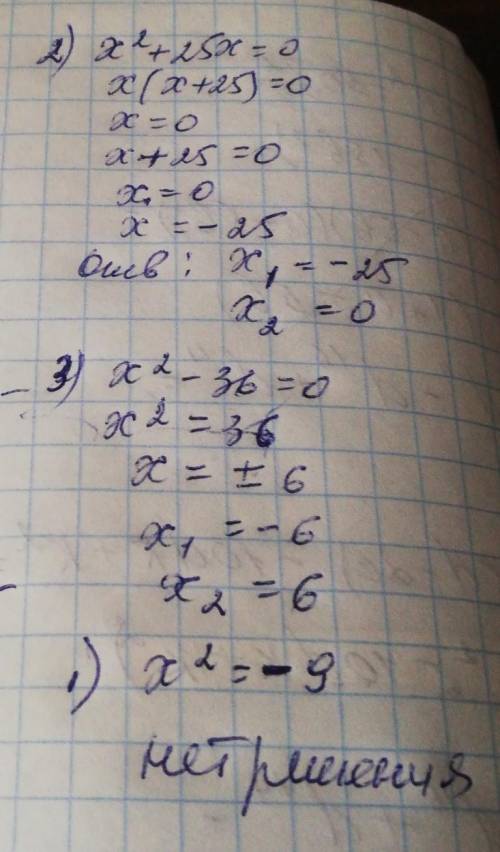 2) x² + 25x = 0
x(x+25) = 0
x = 0
x + 25 = 0
x = 0
x = -25
отв: x₁ = -25
x₂ = 0
3) x² - 36 = 0
x² = 36
x = ± 6
x₁ = -6
x₂ = 6
1) x² = -9
нет решения